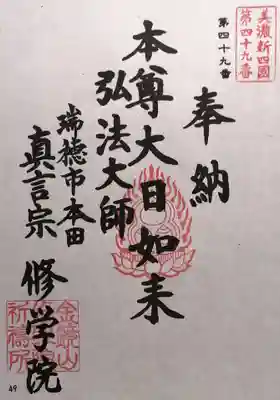 美濃新四國
第四十九番
第四十九番
奉納
本尊大日如来
弘法大師
瑞穂市本田
真言宗 修学院
金鏡山
祈祷所
49